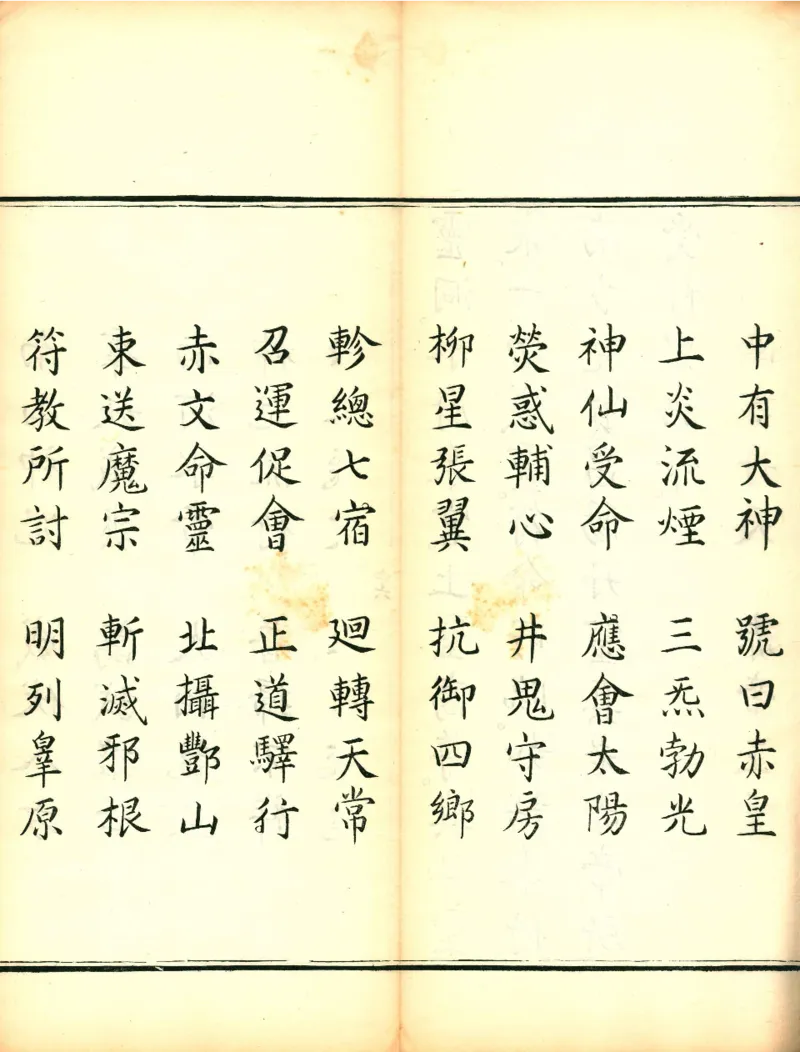 中有大神 號曰赤皇
上炎流煙 三炁勃光
神仙受命 應會太陽
熒惑輔心 井鬼守房
柳星張翼 抗御四鄉
軫總七宿 廻轉天常
召運促會 正道驛行
赤文命靈 北攝酆山
束送魔宗 斬滅邪根
符教所討 明列辠原